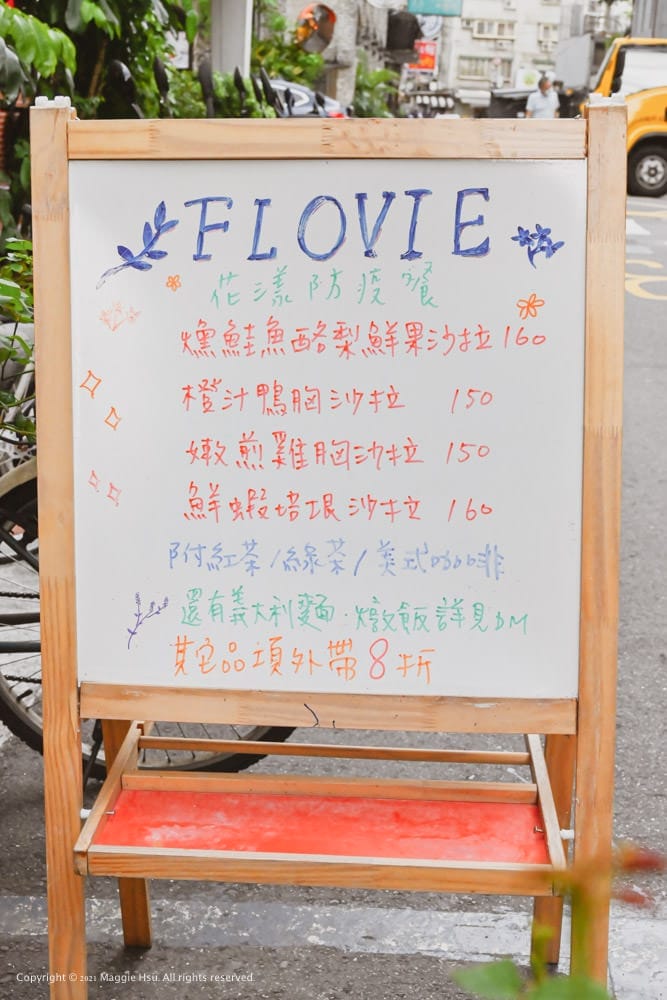 FLOVIE
花漾防疫餐
燻鮭魚酪梨鮮果沙拉 160
橙汁鴨胸沙拉 150
嫩煎雞胸沙拉 150
鮮蝦培根沙拉 160
附紅茶/綠茶/美式咖啡
還有義大利麵·燉飯詳見DM
其它品項外帶8折
Copyright © 2021 Maggie Hsu. All rights reserved.